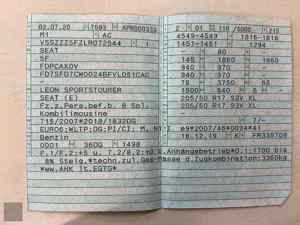 02.07.20 7593 APR000333
M1 AC
VSSZZZ5FZLR072544 1
SEAT
5F
FDPCAXDV
FD7SFD7CW0024BFVLOS1CAC
LEON SPORTSTOURER
SEAT (E)
Fz.z.Pers.bef.b. 8 Spl.
Kombilimousine
715/2007*2018/1832DG
EURO6;WLTP;DG;PI/CI; M, N1 I
Benzin
0001 36DG 1498
2 01 110 /5000 210
4549-4549 1816-1816
1451-1451 1294
80
145 1860 1860
940 970
940 970
78
1500 640 5
205/50 R17 93V XL
205/50 R17 93V XL
7/-
e9*2007/46*0094*41
18.12.19 K
F.1/F.2:+5 u. 7.2/8.2:+0 b.Anhängebetrieb*O.1:1700 b.
8% Steig.*techn.zul.Ges-Masse d.Zugkombination:3360kg
*ww.AHK lt.EGTG*